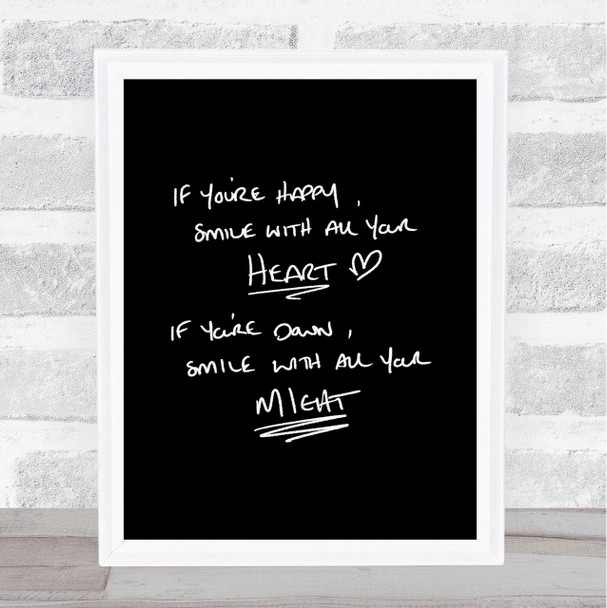 IF YOU'RE HAPPY,
SMILE WITH ALL YOUR
HEART ♡
IF YOU'RE DOWN,
SMILE WITH ALL YOUR
MIGHT